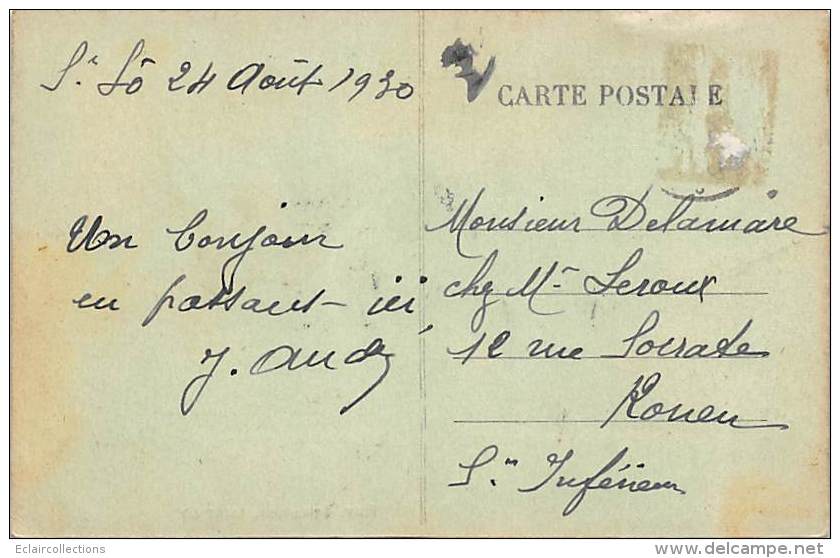 St Lô 24 Août 1930
CARTE POSTALE
Un bonjour
en passant ici
Monsieur Delamare
chez Mr Leroux
12 rue Socrate
Rouen
Sne Inférieure
Eclaircollections
delcampe.net